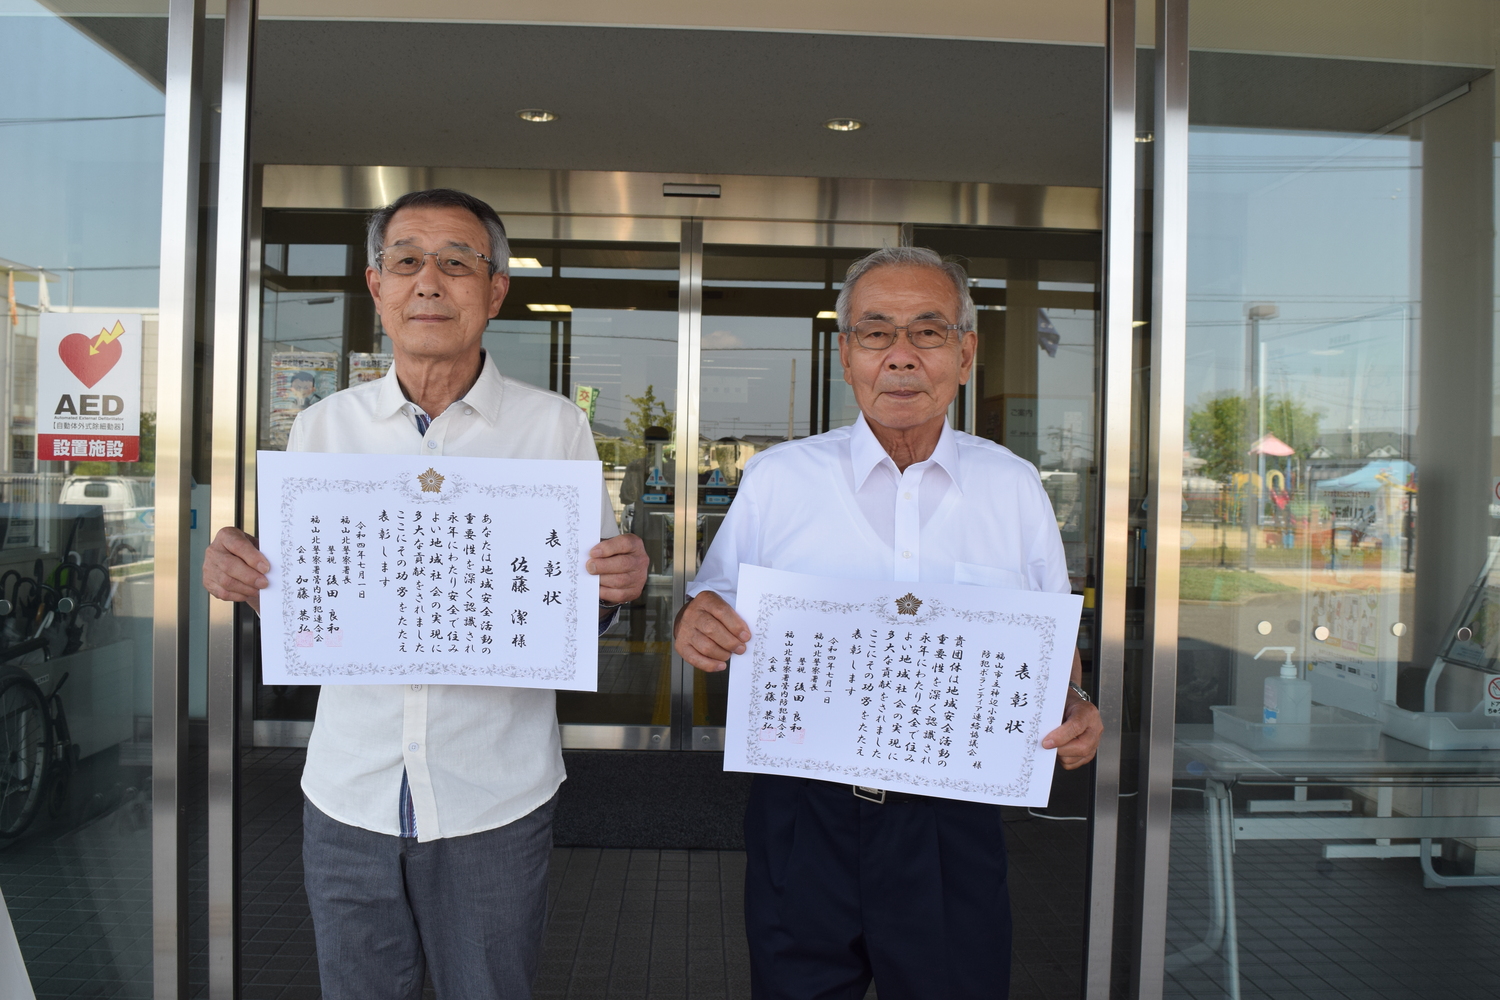 AED
Automated External Defibrillator
【自動体外式除細動器】
設置施設
表彰状
佐藤 潔 様
あなたは地域安全活動の
重要性を深く認識され
永年にわたり安全で住み
よい地域社会の実現に
多大な貢献をされました
ここにその功労をたたえ
表彰します
令和四年七月一日
福山北警察署長
警視 後田 良和
福山北警察署管内防犯連合会
会長 加藤 恭弘
表彰状
福山市立神辺小学校
防犯ボランティア連絡協議会 様
貴団体は地域安全活動の
重要性を深く認識され
永年にわたり安全で住み
よい地域社会の実現に
多大な貢献をされました
ここにその功労をたたえ
表彰します
令和四年七月一日
福山北警察署長
警視 後田 良和
福山北警察署管内防犯連合会
会長 加藤 恭弘
ご案内
交